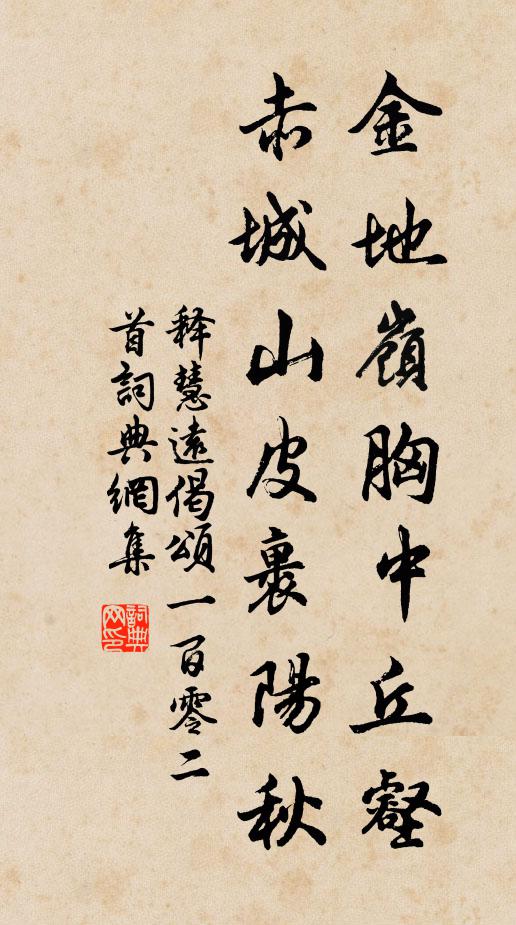 金地嶺胸中丘壑
赤城山皮裹陽秋
释慧遠偈頌一百零二
首詞典網集
詞典网印